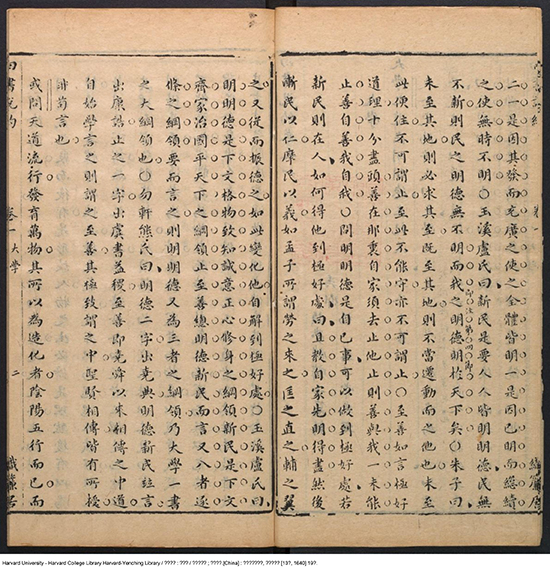 二一是因其發而充廣之使之全體皆明一是因已明而繼續
之使無時不明○玉溪盧氏曰新民是要人人皆明明德民無
不新則民之明德無不明而我之明德明於天下矣○朱子曰
未至其地則必求其至既至其地則不當遷動而之他也未至
此便住不可謂止至此不能守亦不可謂止○至善如言極好
道理十分盡頭善在那裏自家須去止他止則善與我一未能
止善自善我自我○問明明德是自己事可以做到極好處若
新民則在人如何得他到極好處曰且教自家先明得盡然後
漸民以仁摩民以義如孟子所謂勞之來之匡之直之輔之翼
之又從而振德之如此變化他自解到極好處○玉溪盧氏曰
明明德是下文格物致知誠意正心修身之綱領新民是下文
齊家治國平天下之綱領止至善總明德新民而言又八者逐
條之綱領要而言之則明明德又為三者之綱領乃大學一書
之大綱領也○勿軒熊氏曰明德二字出堯典明德新民並言
出康誥止之一字出虞書益稷至善即堯舜以來相傳之中道
自始學言之則謂之至善其極致謂之中聖賢相傳皆有所授
非苟言也
或問天道流行發育萬物其所以為造化者陰陽五行而已而
四書說約 卷一大學 二 織簾居
Harvard University - Harvard College Library Harvard-Yenching Library / ???? : ??? / ????? ; ???? [China] : ???????, ????? [13?, 1640] 19?